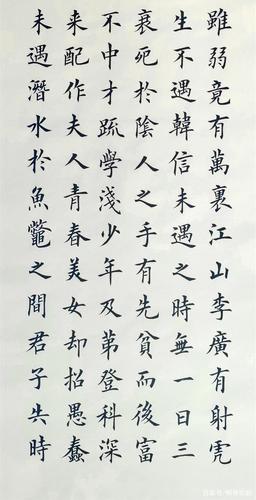 雖弱竟有萬裏江山李廣有射虎
生不遇韓信未遇之時無一日三
衰死於陰人之手有先貧而後富
不中才疏學淺少年及第登科深
来配作夫人青春美女却招愚蠢
未遇潛水於魚鼈之間君子失時